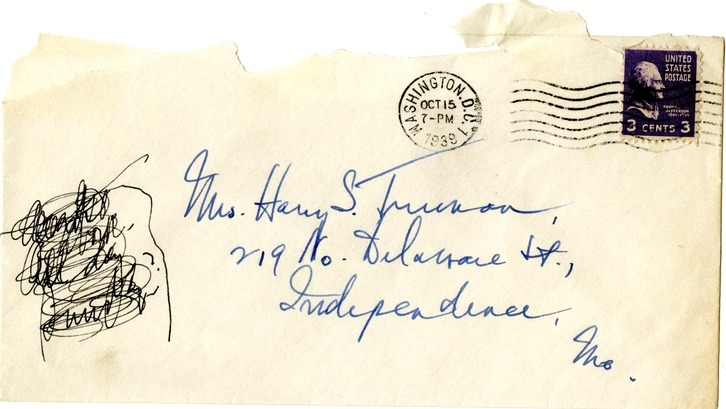 WASHINGTON, D.C. 1
OCT 15
7-PM
1939
UNITED
STATES
POSTAGE
THOMAS
JEFFERSON
3 CENTS 3
Mrs. Harry S. Truman,
219 No. Delaware St.,
Independence,
Mo.